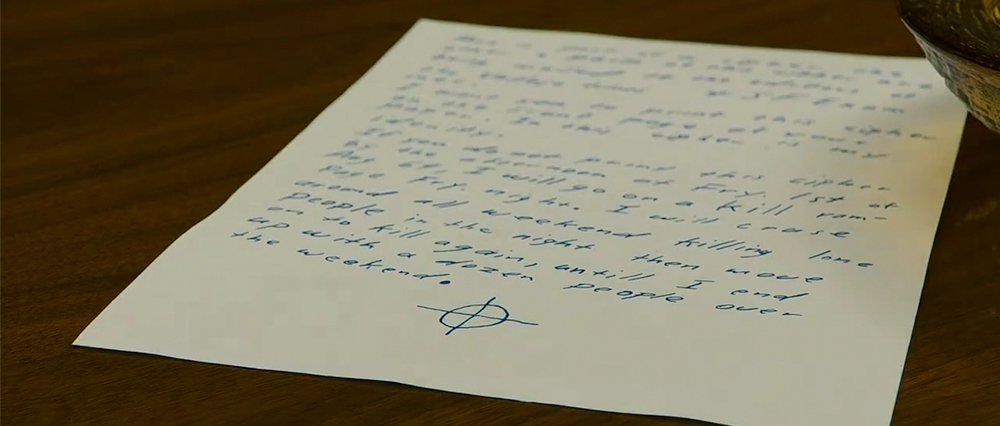 part of cipher the
this cipher are
to the editors of
& SF Exam
I want you to print this cipher
on the front page of your
paper. In this cipher is my
idenity.
If you do not print this cipher
by the afternoon of Fry. 1st of
Aug 69, I will go on a kill ram-
page Fry. night. I will cruse
around all weekend killing lone
people in the night then move
on to kill again, untill I end
up with a dozen people over
the weekend.